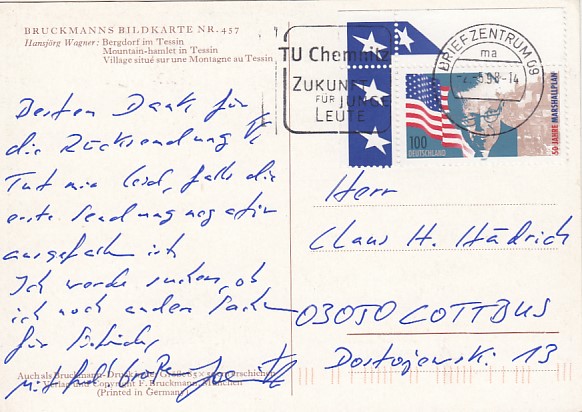 BRUCKMANNS BILDKARTE NR. 457
Hansjörg Wagner: Bergdorf im Tessin
Mountain-hamlet in Tessin
Village situé sur une Montagne au Tessin
TU Chemnitz
ZUKUNFT
FÜR JUNGE
LEUTE
BRIEFZENTRUM 09
ma
-14
100
DEUTSCHLAND
50 JAHRE MARSHALLPLAN
Besten Dank für
die Rücksendung
Tut mir leid, falls die
erste Sendung negativ
ausgefallen ist
Ich werde suchen, ob
ich noch andere Sachen
für
mit
Herr
Claus H. Hädrich
03050 COTTBUS
Dostojewski 13
Auch als Bruckmann-Druck
Verlag und Copyright F. Bruckmann, München
(Printed in Germany)